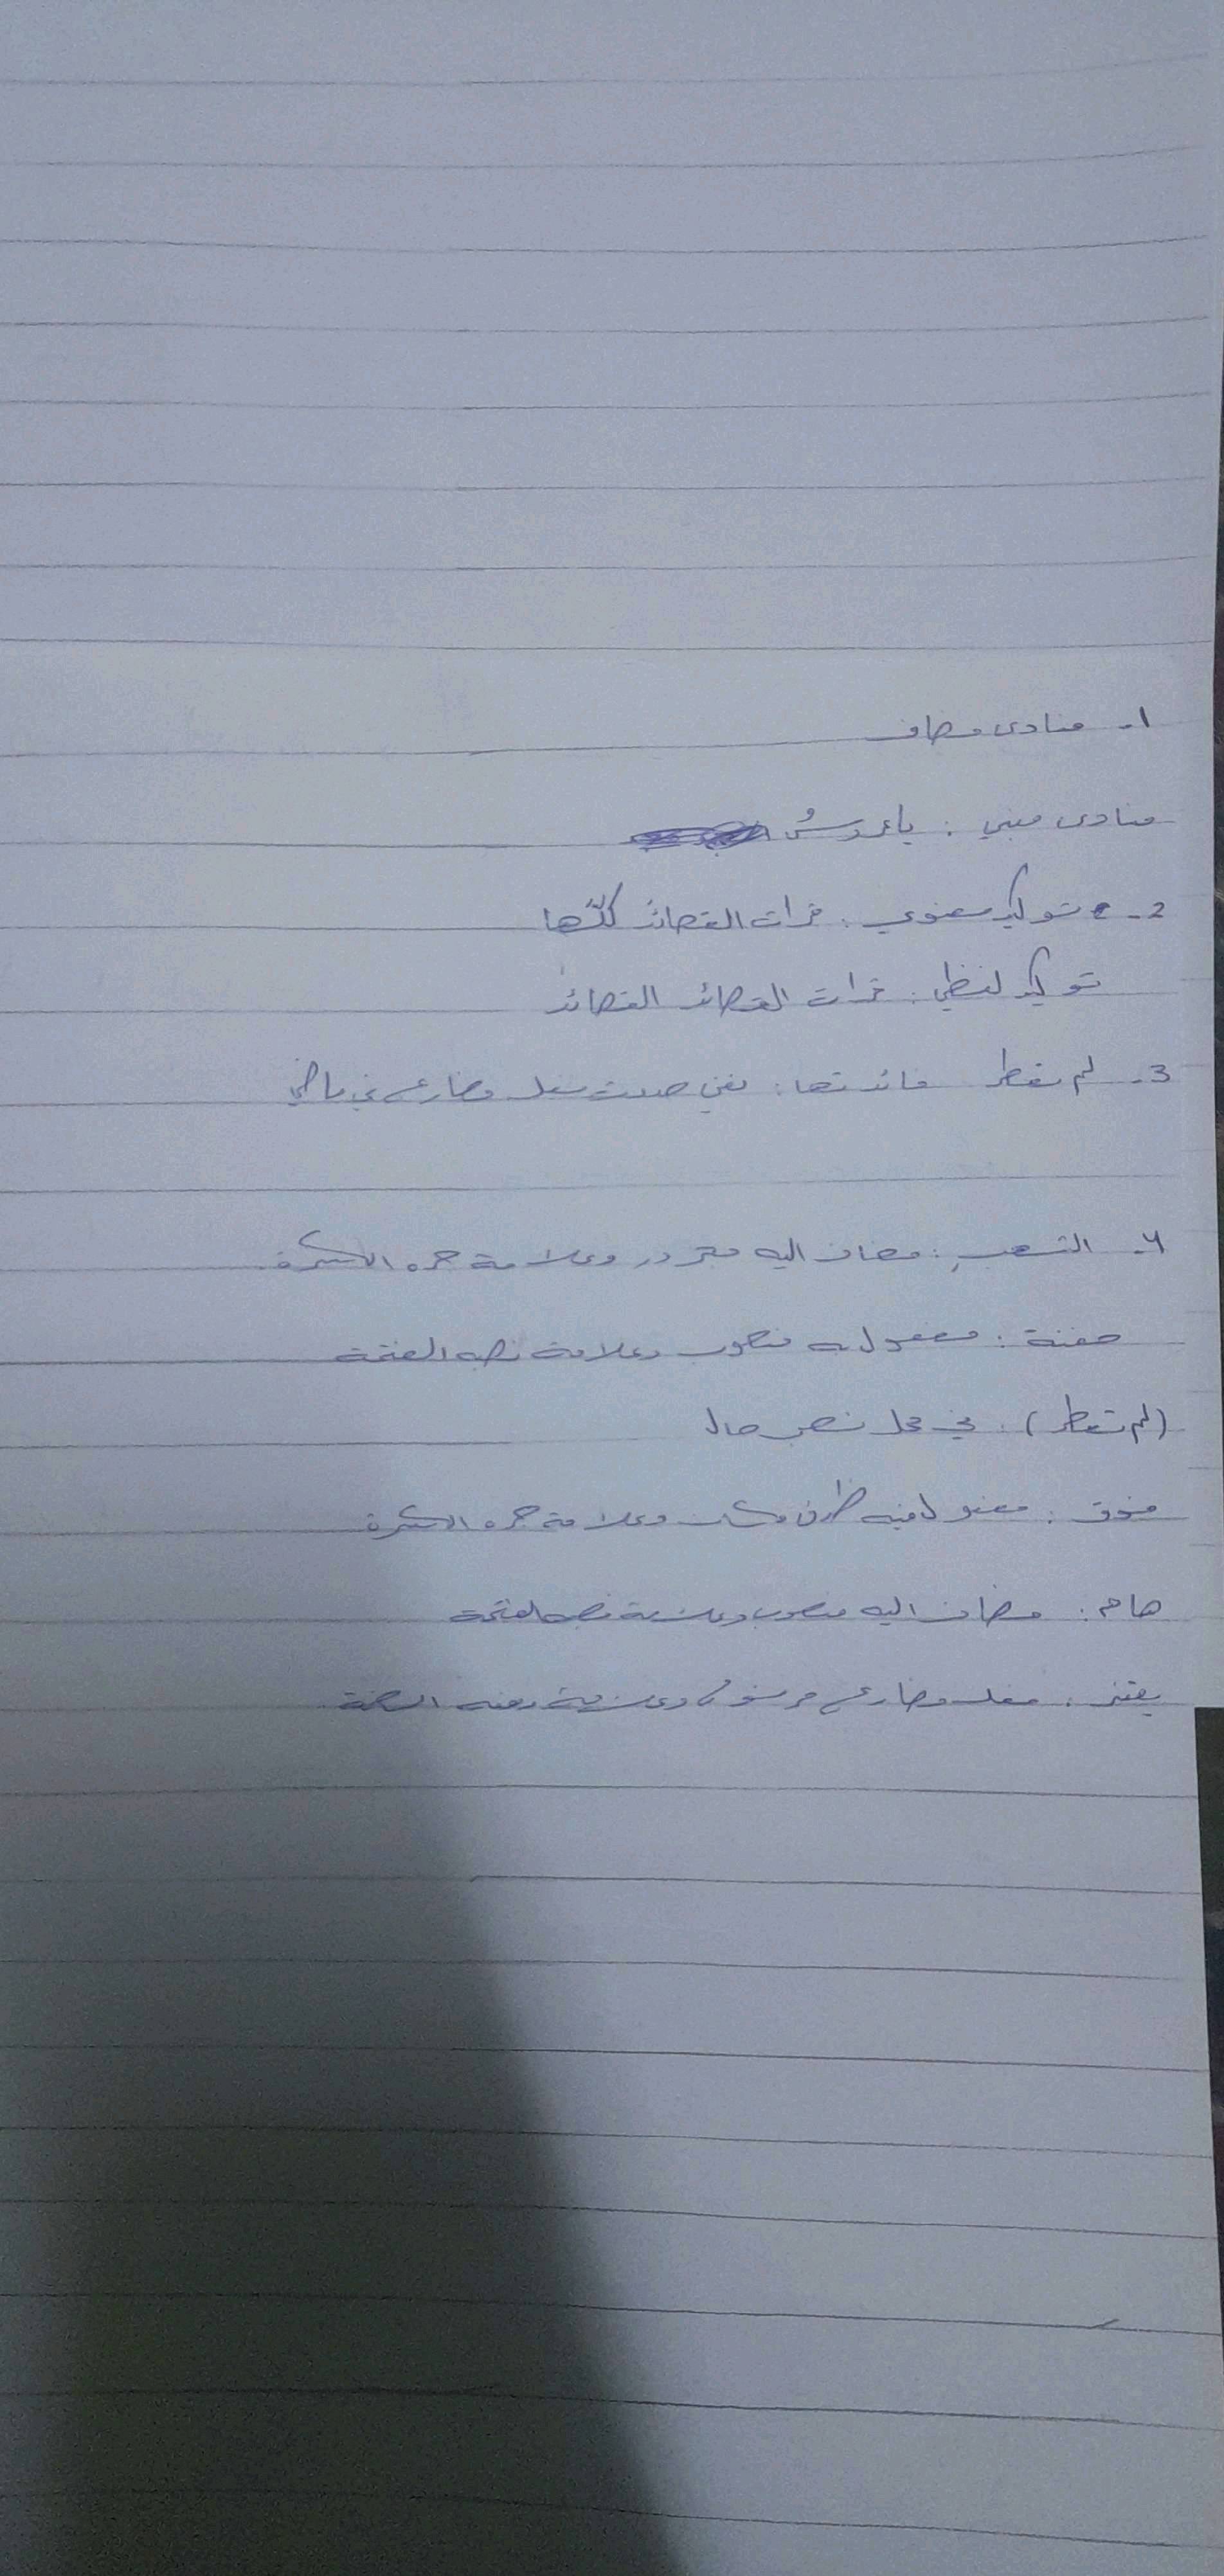 ١- منادى مضاف
منادى مبني : يا عروسُ
2- توكيد معنوي : قرأت القصائدَ كلّها
توكيد لفظي : قرأت القصائد القصائدَ
3- لم تعطر فائدتها : نفي حدوث فعل مضارع في ماضي
٤- الشعبِ : مضاف اليه مجرور وعلامة جره الكسرة
حفنة : مفعول به منصوب وعلامة نصبه الفتحة
(لم تعطر) : في محل نصب حال
فوق : مفعول فيه ظرف مكان وعلامة جره الكسرة
هام : مضاف اليه منصوب وعلامة نصبه الفتحة
فعل مضارع مرفوع وعلامة رفعه الضمة